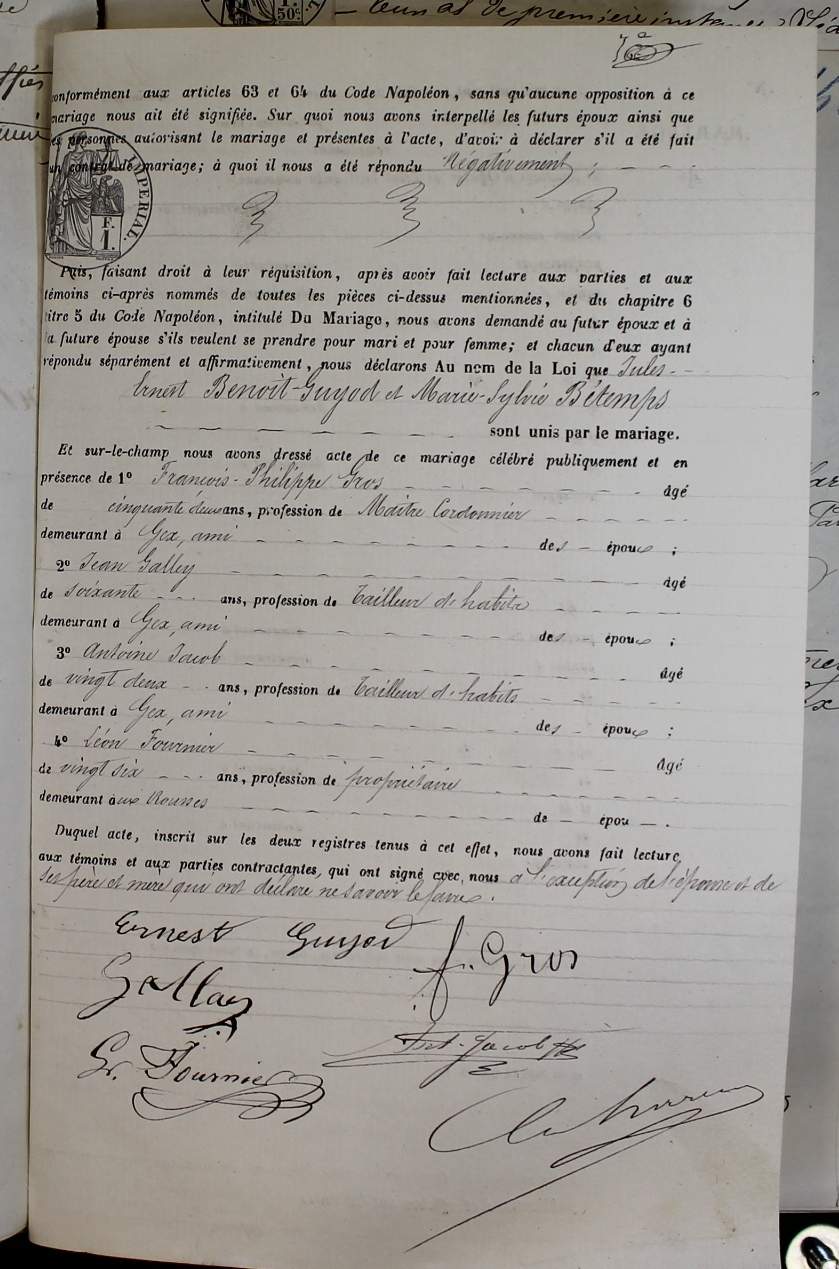 50c
de première instance
conformément aux articles 63 et 64 du Code Napoléon, sans qu'aucune opposition à ce
mariage nous ait été signifiée. Sur quoi nous avons interpellé les futurs époux ainsi que
les personnes autorisant le mariage et présentes à l'acte, d'avoir à déclarer s'il a été fait
un contrat de mariage; à quoi il nous a été répondu Négativement;
IMPERIAL.
F.
1.
Puis, faisant droit à leur réquisition, après avoir fait lecture aux parties et aux
témoins ci-après nommés de toutes les pièces ci-dessus mentionnées, et du chapitre 6
titre 5 du Code Napoléon, intitulé Du Mariage, nous avons demandé au futur époux et à
la future épouse s'ils veulent se prendre pour mari et pour femme; et chacun d'eux ayant
répondu séparément et affirmativement, nous déclarons Au nom de la Loi que Jules-
Ernest Benoit-Guyod et Marie-Sylvie Bétemps
sont unis par le mariage.
Et sur-le-champ nous avons dressé acte de ce mariage célébré publiquement et en
présence de 1º François-Philippe Gros âgé
de cinquante deux ans, profession de Maître Cordonnier
demeurant à Gex, ami des époux;
2º Jean Galley âgé
de soixante ans, profession de tailleur d'habits
demeurant à Gex, ami des époux;
3º Antoine Jacob âgé
de vingt deux ans, profession de tailleur d'habits
demeurant à Gex, ami des époux:
4º Léon Fournier âgé
de vingt six ans, profession de propriétaire
demeurant aux Rousses de — épou —.
Duquel acte, inscrit sur les deux registres tenus à cet effet, nous avons fait lecture
aux témoins et aux parties contractantes, qui ont signé avec nous à l'exception de l'épouse et de
ses père et mère qui ont déclaré ne savoir le faire.
Ernest Guyod
f. Gros
Gallay
Ant. Jacob
Fournier